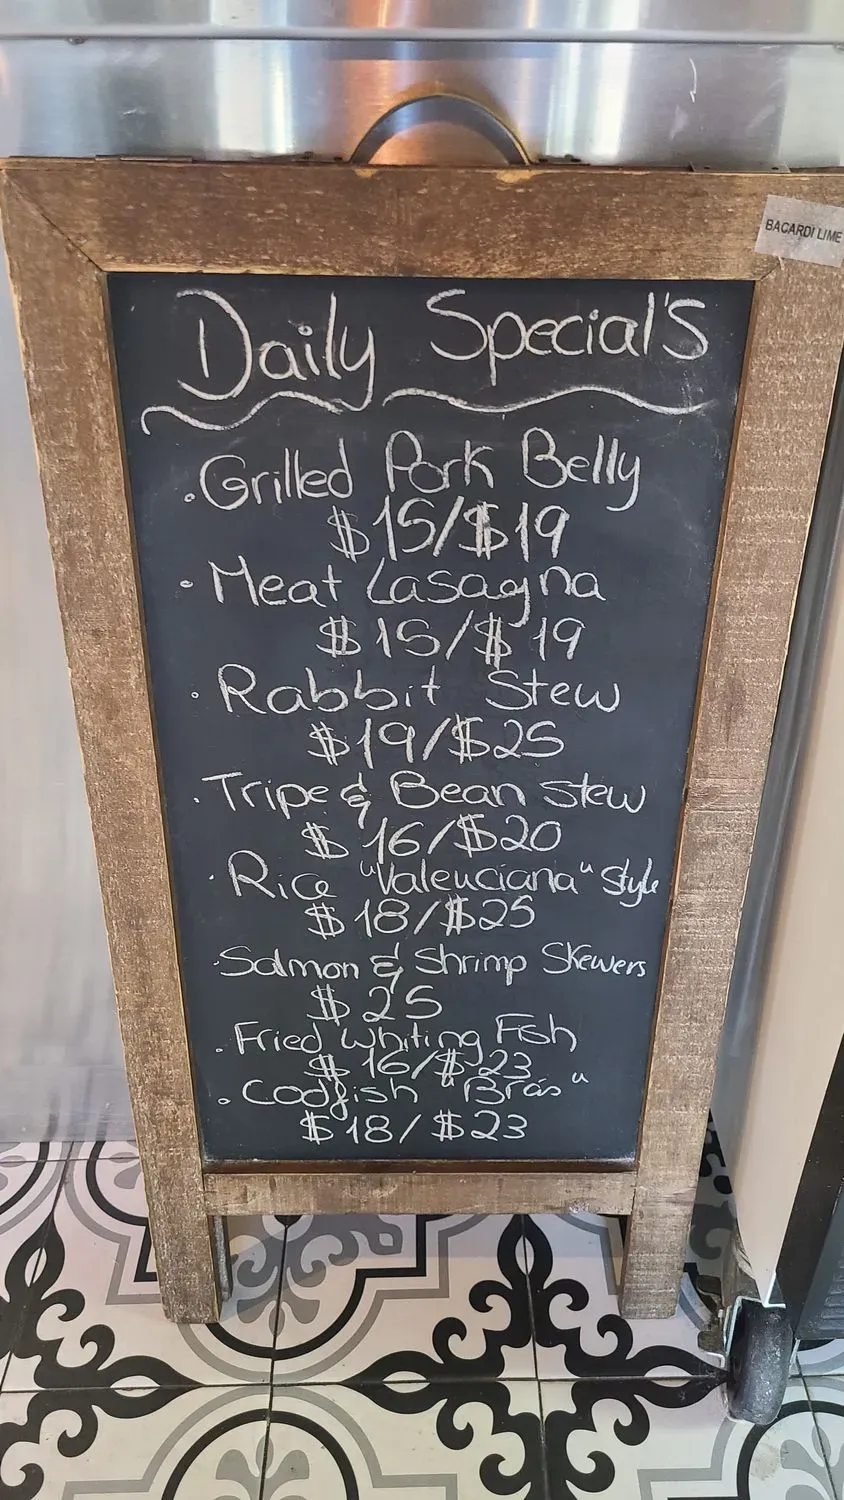 BACARDI LIME
Daily Special's
. Grilled Pork Belly
$15/$19
. Meat Lasagna
$15/$19
. Rabbit Stew
$19/$25
. Tripe & Bean Stew
$16/$20
. Rice "Valenciana" Style
$18/$25
. Salmon & Shrimp Skewers
$25
. Fried Whiting Fish
$16/$23
. Codfish "Brás"
$18/$23